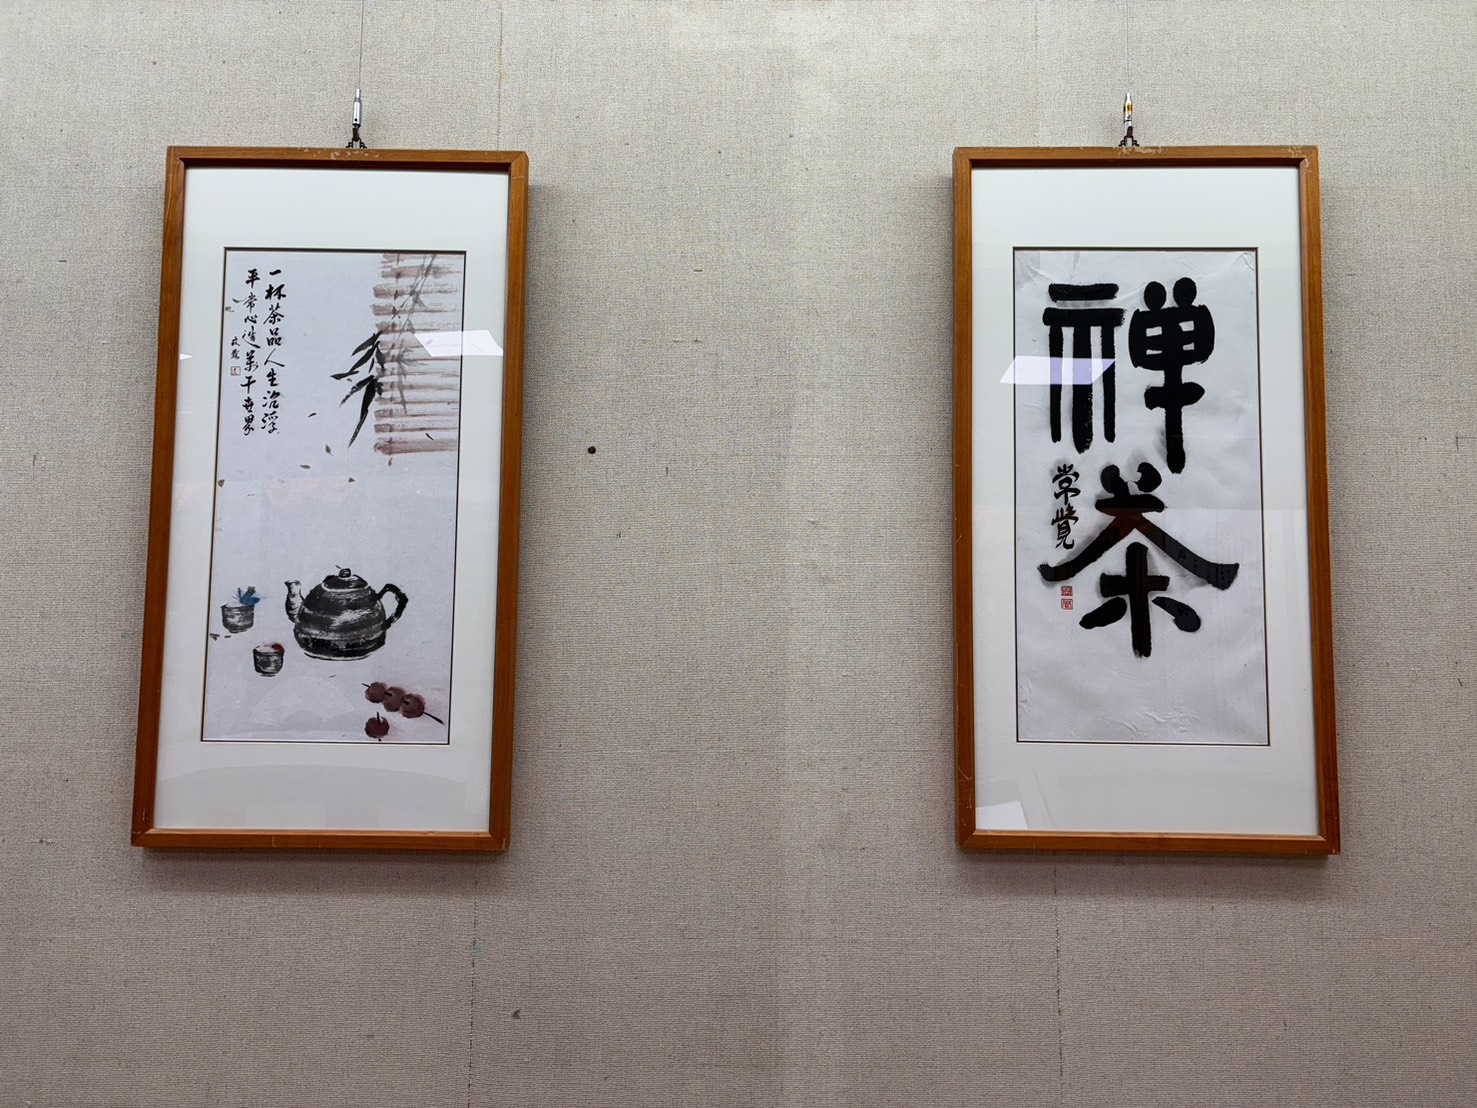 一杯茶品人生沉浮
平常心造萬千世界
禪茶
常覺